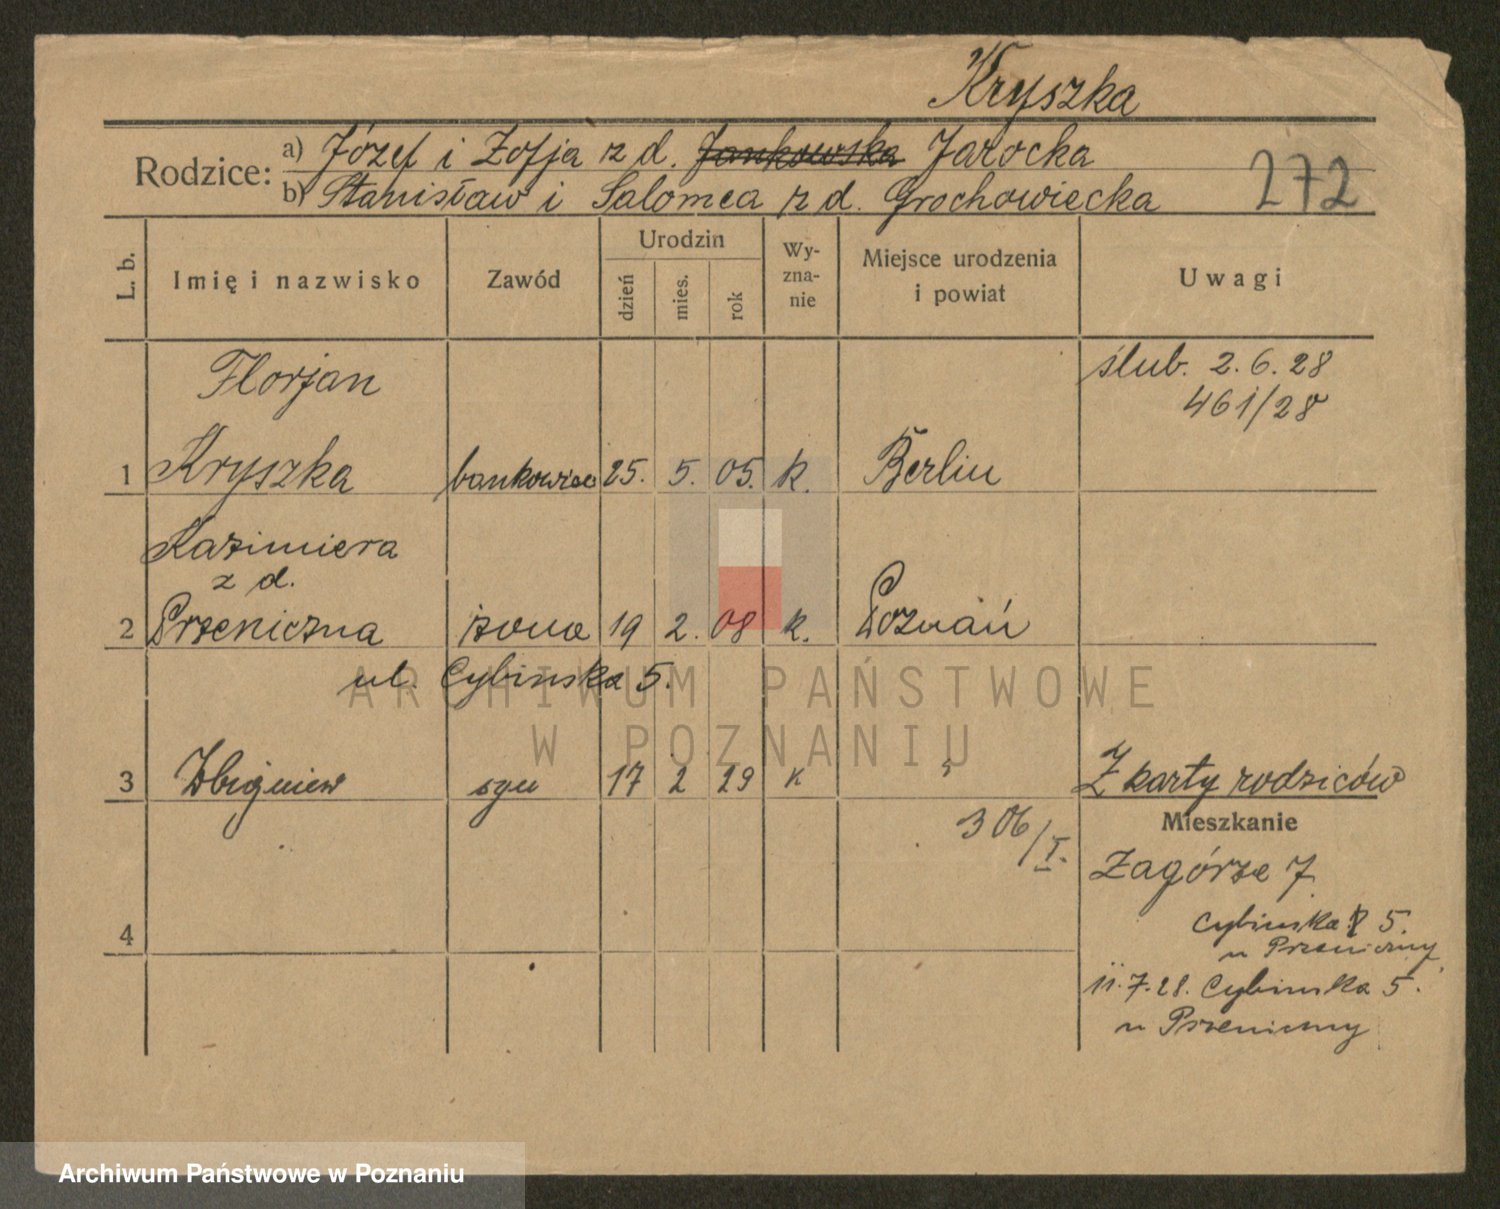 Kryszka
Rodzice: a) Józef i Zofja z d. Jankowska Jarocka
b) Stanisław i Salomea z d. Grochowiecka
272
L. b. Imię i nazwisko Zawód Urodzin dzień mies. rok Wy-zna-nie Miejsce urodzenia i powiat Uwagi
Florjan
ślub. 2.6.28
461/28
1 Kryszka bankowiec 25. 5. 05. k. Berlin
Kazimiera
z d.
2 Przeniczna żona 19 2. 08 k. Poznań
ul. Cybinska 5.
ARCHIWUM PAŃSTWOWE
W POZNANIU
3 Zbigniew syn 17 2 29 k Z karty rodziców
306/I.
Mieszkanie
Zagórze 7
Cybinska 5.
u Przeniczny
4
11.7.28. Cybinska 5.
u Przeniczny
Archiwum Państwowe w Poznaniu